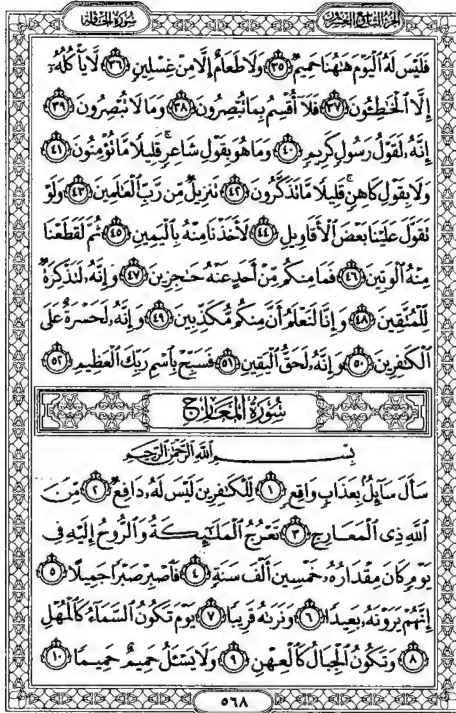 الجزء التاسع والعشرون
سورة الحاقة
فَلَيْسَ لَهُ ٱلْيَوْمَ هَٰهُنَا حَمِيمٌ ٣٥ وَلَا طَعَامٌ إِلَّا مِنْ غِسْلِينٍ ٣٦ لَّا يَأْكُلُهُۥٓ
إِلَّا ٱلْخَٰطِـُٔونَ ٣٧ فَلَآ أُقْسِمُ بِمَا تُبْصِرُونَ ٣٨ وَمَا لَا تُبْصِرُونَ ٣٩
إِنَّهُۥ لَقَوْلُ رَسُولٍ كَرِيمٍ ٤٠ وَمَا هُوَ بِقَوْلِ شَاعِرٍ ۚ قَلِيلًا مَّا تُؤْمِنُونَ ٤١
وَلَا بِقَوْلِ كَاهِنٍ ۚ قَلِيلًا مَّا تَذَكَّرُونَ ٤٢ تَنزِيلٌ مِّن رَّبِّ ٱلْعَٰلَمِينَ ٤٣ وَلَوْ
تَقَوَّلَ عَلَيْنَا بَعْضَ ٱلْأَقَاوِيلِ ٤٤ لَأَخَذْنَا مِنْهُ بِٱلْيَمِينِ ٤٥ ثُمَّ لَقَطَعْنَا
مِنْهُ ٱلْوَتِينَ ٤٦ فَمَا مِنكُم مِّنْ أَحَدٍ عَنْهُ حَٰجِزِينَ ٤٧ وَإِنَّهُۥ لَتَذْكِرَةٌ
لِّلْمُتَّقِينَ ٤٨ وَإِنَّا لَنَعْلَمُ أَنَّ مِنكُم مُّكَذِّبِينَ ٤٩ وَإِنَّهُۥ لَحَسْرَةٌ عَلَى
ٱلْكَٰفِرِينَ ٥٠ وَإِنَّهُۥ لَحَقُّ ٱلْيَقِينِ ٥١ فَسَبِّحْ بِٱسْمِ رَبِّكَ ٱلْعَظِيمِ ٥٢
سُورَةُ المَعَارِج
بِسْمِ ٱللَّهِ ٱلرَّحْمَٰنِ ٱلرَّحِيمِ
سَأَلَ سَآئِلٌۢ بِعَذَابٍ وَاقِعٍ ١ لِّلْكَٰفِرِينَ لَيْسَ لَهُۥ دَافِعٌ ٢ مِّنَ
ٱللَّهِ ذِى ٱلْمَعَارِجِ ٣ تَعْرُجُ ٱلْمَلَٰٓئِكَةُ وَٱلرُّوحُ إِلَيْهِ فِى
يَوْمٍ كَانَ مِقْدَارُهُۥ خَمْسِينَ أَلْفَ سَنَةٍ ٤ فَٱصْبِرْ صَبْرًا جَمِيلًا ٥
إِنَّهُمْ يَرَوْنَهُۥ بَعِيدًا ٦ وَنَرَىٰهُ قَرِيبًا ٧ يَوْمَ تَكُونُ ٱلسَّمَآءُ كَٱلْمُهْلِ
٨ وَتَكُونُ ٱلْجِبَالُ كَٱلْعِهْنِ ٩ وَلَا يَسْـَٔلُ حَمِيمٌ حَمِيمًا ١٠
٥٦٨